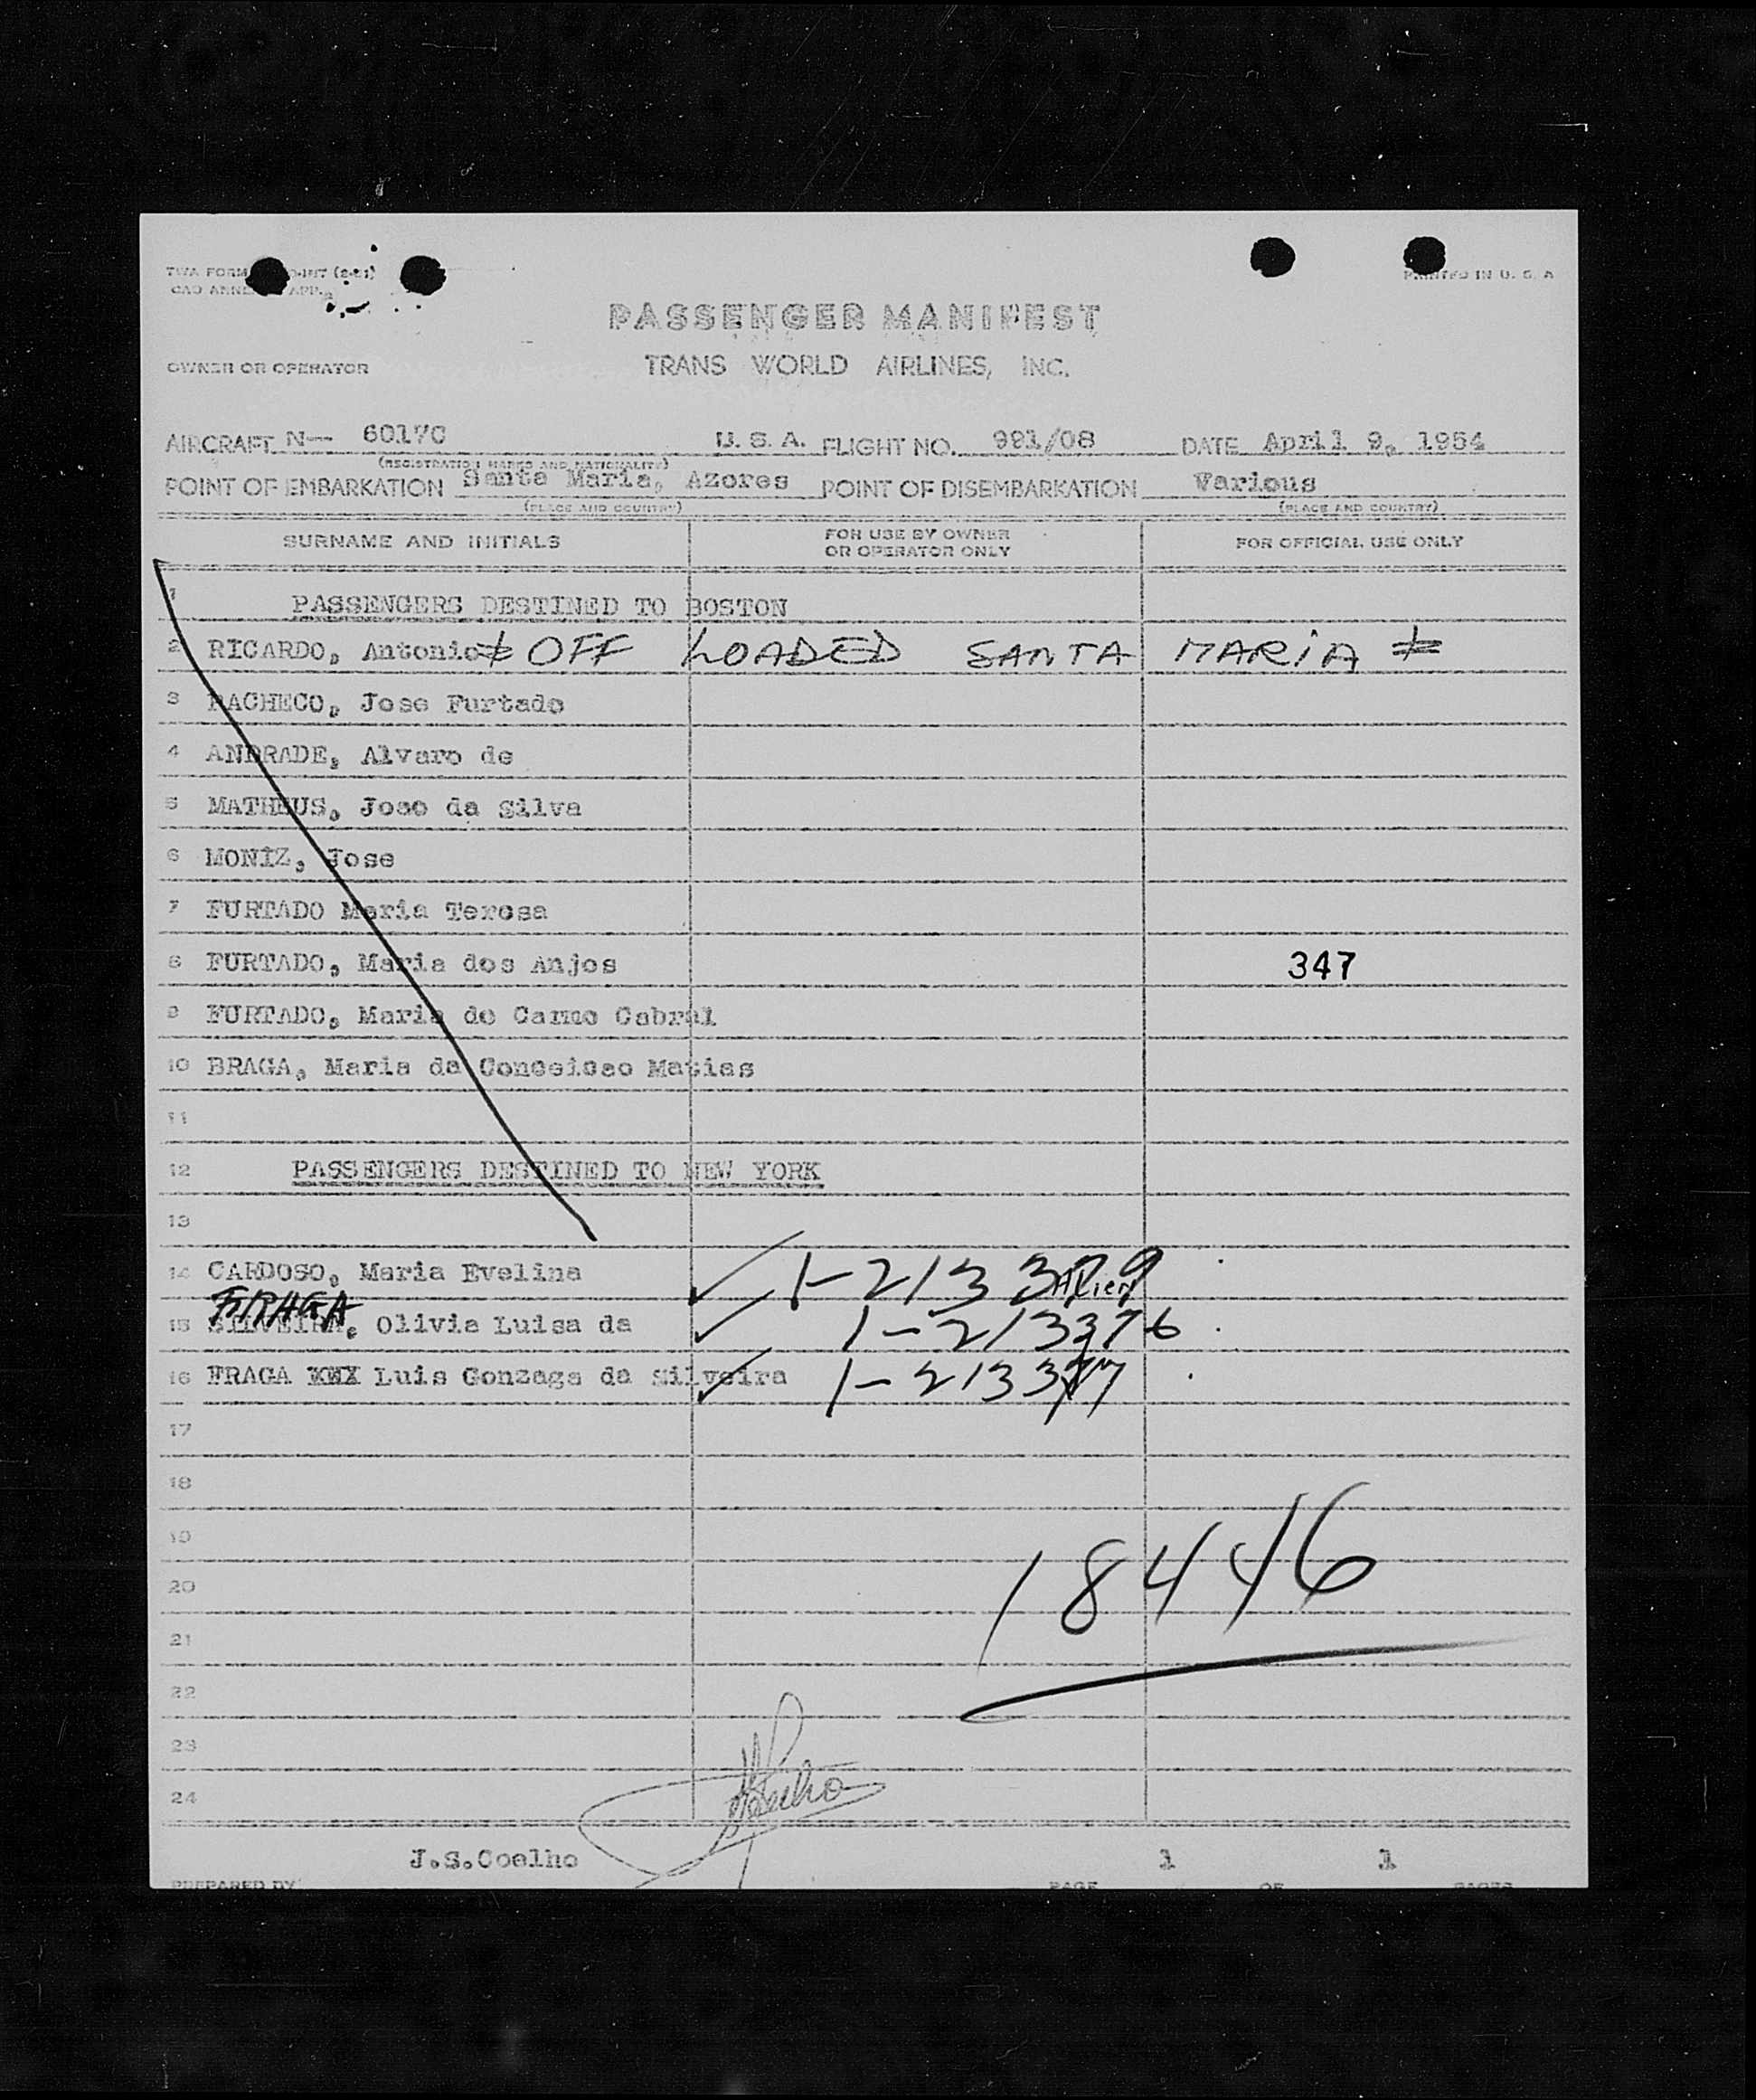 TWA FORM
PRINTED IN U. S. A
PASSENGER MANIFEST
OWNER OR OPERATOR TRANS WORLD AIRLINES, INC.
AIRCRAFT N-- 6017C U. S. A. FLIGHT NO. 991/08 DATE April 9, 1954
(REGISTRATION MARKS AND NATIONALITY)
POINT OF EMBARKATION Santa Maria, Azores POINT OF DISEMBARKATION Various
(PLACE AND COUNTRY) (PLACE AND COUNTRY)
SURNAME AND INITIALS FOR USE BY OWNER OR OPERATOR ONLY FOR OFFICIAL USE ONLY
1 PASSENGERS DESTINED TO BOSTON
2 RICARDO, Antonio OFF LOADED SANTA MARIA
3 PACHECO, Jose Furtado
4 ANDRADE, Alvaro de
5 MATHEUS, Jose da Silva
6 MONIZ, Jose
7 FURTADO Maria Teresa
8 FURTADO, Maria dos Anjos 347
9 FURTADO, Maria do Carmo Cabral
10 BRAGA, Maria da Conceicao Matias
11
12 PASSENGERS DESTINED TO NEW YORK
13
14 CARDOSO, Maria Evelina ✓ 1-213379 Alien
FRAGA
15 SILVEIRA, Olivia Luisa da ✓ 1-213376
16 FRAGA Luis Gonzaga da Silveira ✓ 1-213377
17
18
19
20 18446
21
22
23
24
J.S.Coelho 1 1
PREPARED BY PAGE OF PAGES